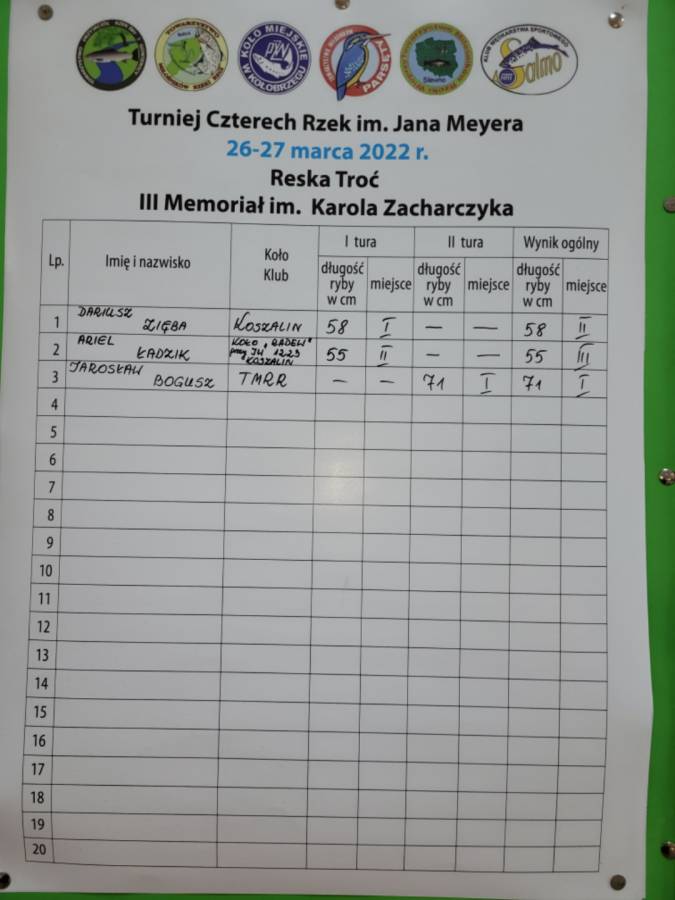 TOWARZYSTWO
KOŁO MIEJSKIE
PZW
W KOŁOBRZEGU
PARSĘTY
Sławno
KLUB WĘDKARSTWA SPORTOWEGO
Salmo
Turniej Czterech Rzek im. Jana Meyera
26-27 marca 2022 r.
Reska Troć
III Memoriał im. Karola Zacharczyka
Lp. Imię i nazwisko Koło Klub I tura II tura Wynik ogólny
długość ryby w cm miejsce długość ryby w cm miejsce długość ryby w cm miejsce
1 DARIUSZ ZIĘBA KOSZALIN 58 I — — 58 II
2 ARIEL ŁADZIK KOŁO „RADEW" przy JW 1223 KOSZALIN 55 II — — 55 III
3 JAROSŁAW BOGUSZ TMRR — — 71 I 71 I
4
5
6
7
8
9
10
11
12
13
14
15
16
17
18
19
20